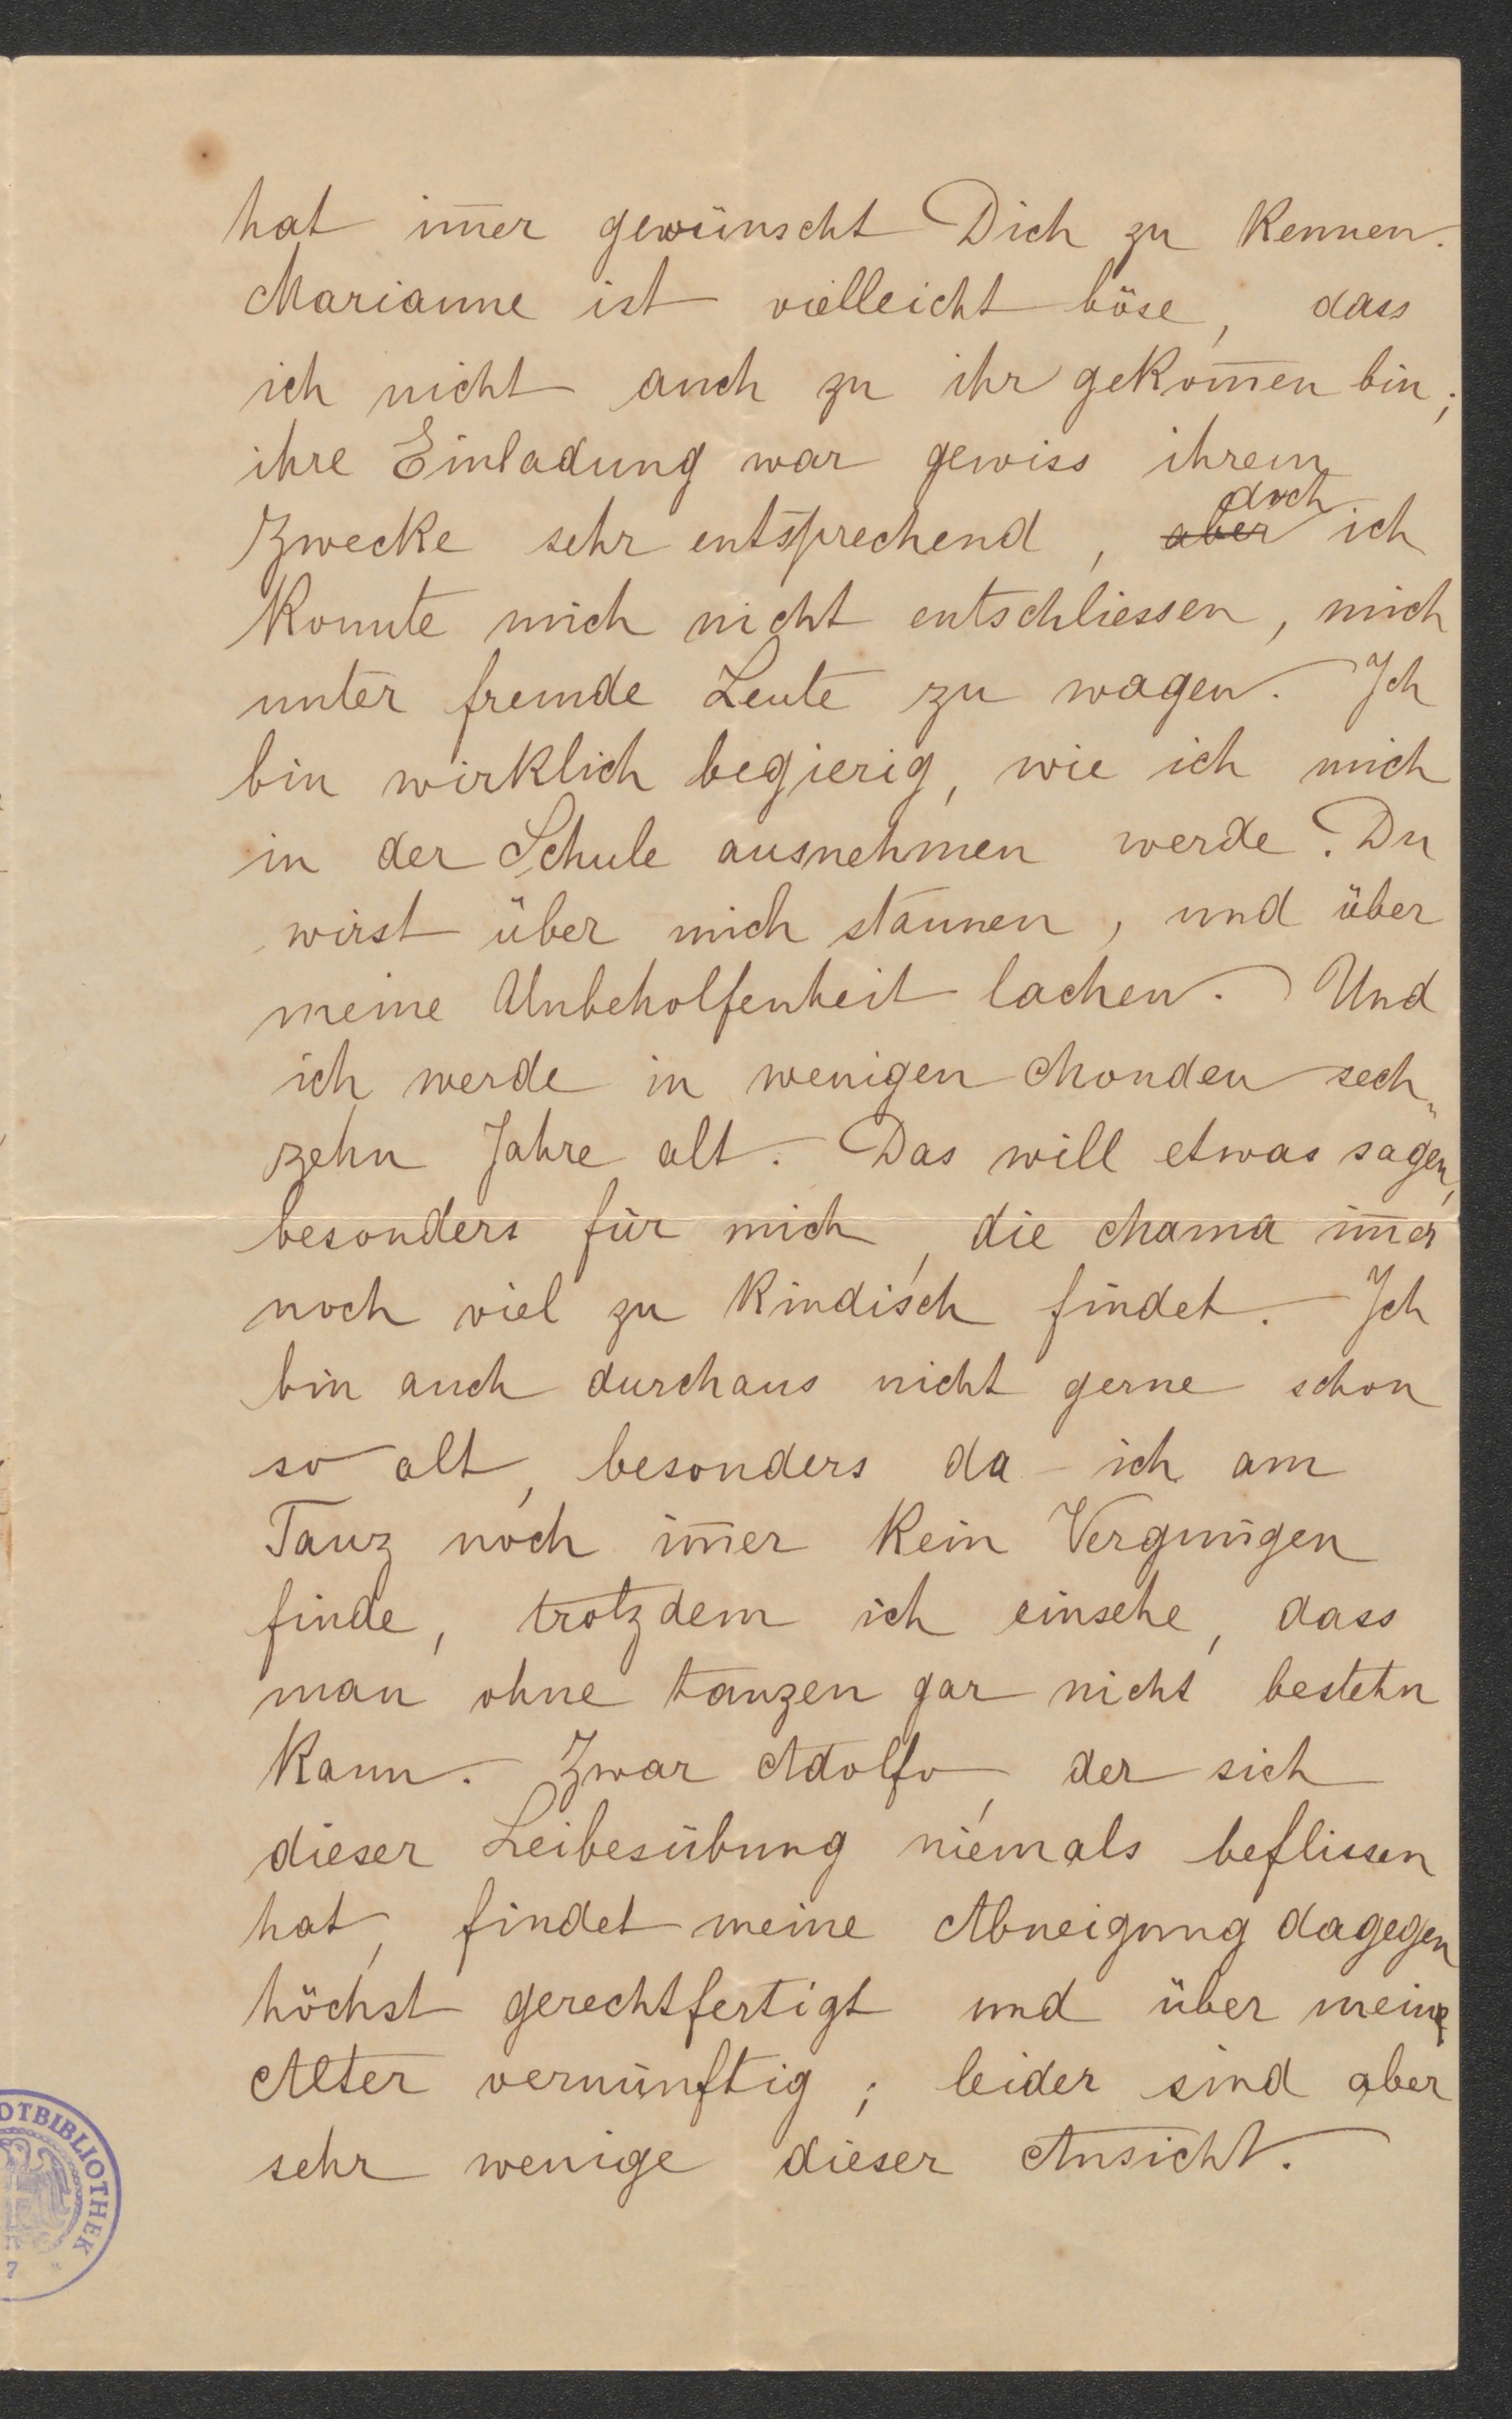 hat im̅er gewünscht Dich zu kennen.
Marianne ist vielleicht böse, dass
ich nicht auch zu ihr gekom̅en bin;
ihre Einladung war gewiss ihrem
doch
Zwecke sehr entsprechend, aber ich
konnte mich nicht entschliessen, mich
unter fremde Leute zu wagen. Ich
bin wirklich begierig, wie ich mich
in der Schule ausnehmen werde. Du
wirst über mich staunen, und über
meine Unbeholfenheit lachen. Und
ich werde in wenigen Monden sech„
zehn Jahre alt. Das will etwas sagen,
besonders für mich, die Mama im̅er
noch viel zu kindisch findet. Ich
bin auch durchaus nicht gerne schon
so alt, besonders da ich am
Tanz noch im̅er kein Vergnügen
finde, trotzdem ich einsehe, dass
man ohne tanzen gar nicht bestehn
kann. Zwar Adolfo, der sich
dieser Leibesübung niemals beflissen
hat, findet meine Abneigung dagegen
höchst gerechtfertigt und über meine
Alter vernünftig; leider sind aber
sehr wenige dieser Ansicht.
OTBIBLIOTHEK
7